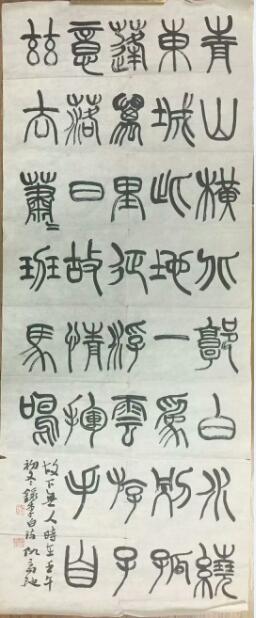 青山橫北郭白水繞
東城此地一為別孤
蓬萬里征浮雲游子
意落日故情揮手自
茲去蕭〻班馬鳴
故下人時在壬午
初冬錄李白詩